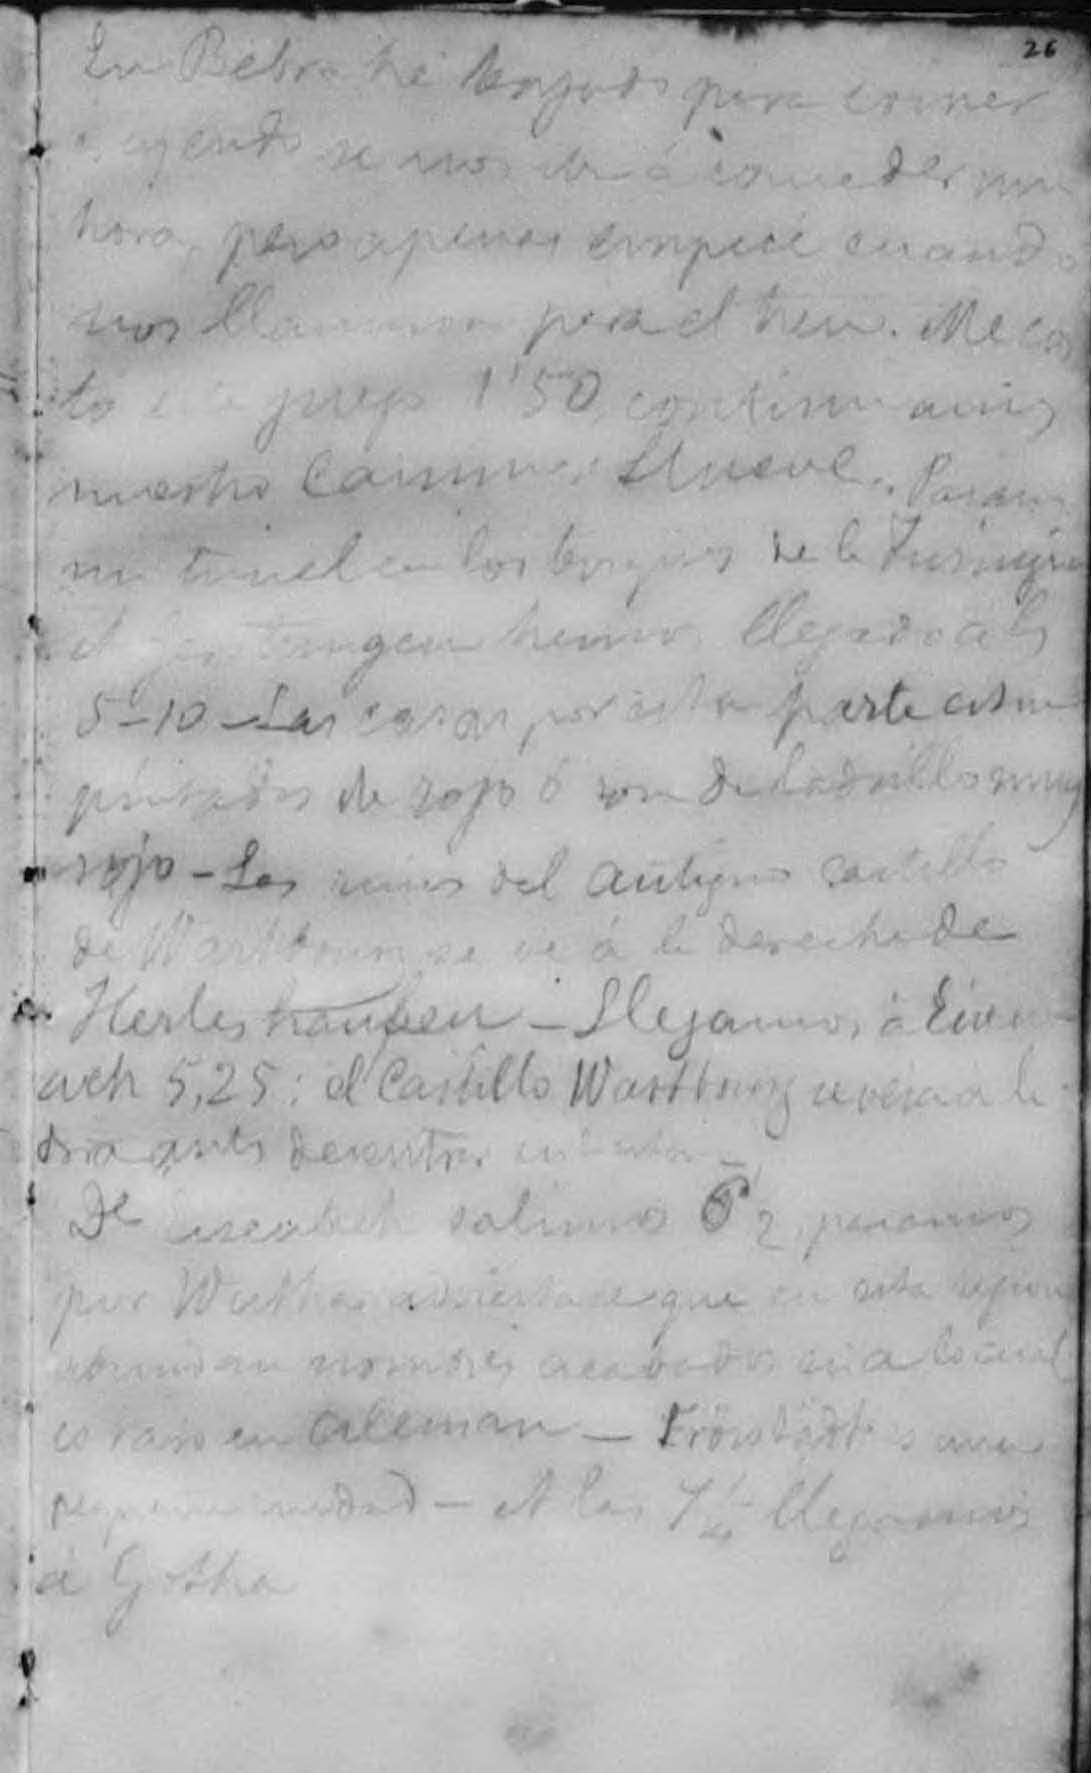 26
En Bebra he bajado para comer
creyendo se nos iba á conceder una
hora, pero apenas empecé cuando
nos llamaron para el tren. Me cos
to este juego 1'50, continuamos
nuestro camino. Llueve. Pasamos
un tunel en los bosques de la Turingia
hemos llegado a las
5-10 - Las casas por esta parte estan
pintadas de rojo ó son de ladrillo muy
rojo - Las ruinas del antiguo castillo
de Wartbourg se ve á la derecha de
Herleshausen - Llegamos á Eisen-
ach 5,25: el Castillo Wartbourg se veia a la
dra antes de entrar
De Eisenach salimos 6 2, pasamos
por Wutha adviertase que en esta region
abundan nombres acabados en a lo cual
es raro en Aleman - Fröttstädt es una
pequeña ciudad - A las 7 1/4 llegamos
á Gotha